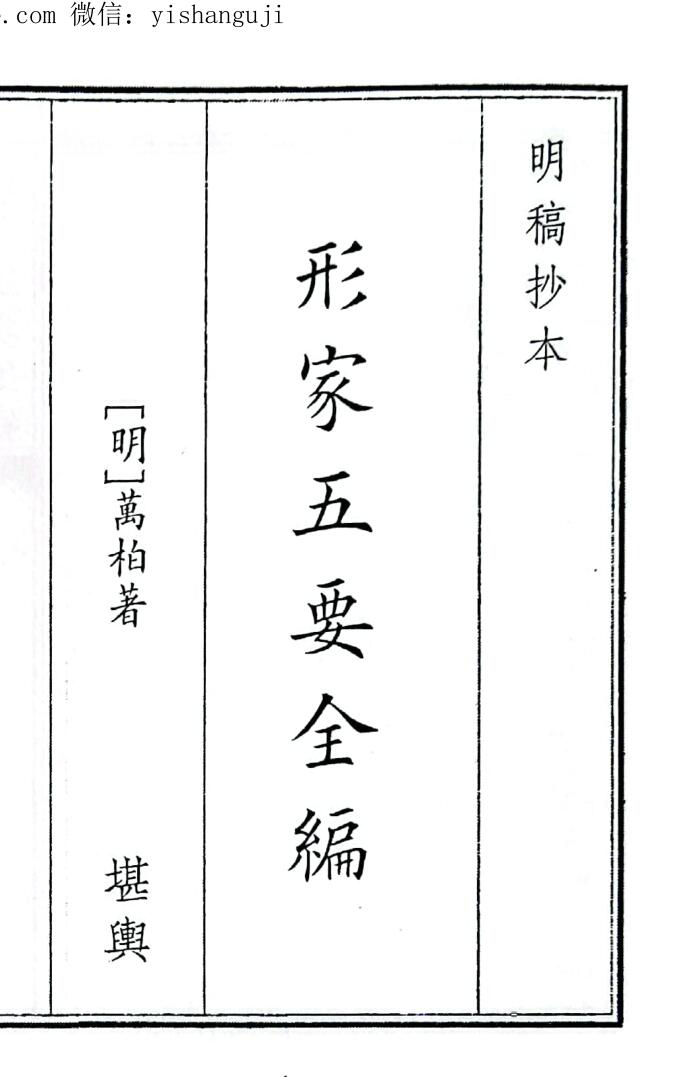 .com 微信: yishanguji
明稿抄本
形家五要全編
[明]萬柏著
堪輿